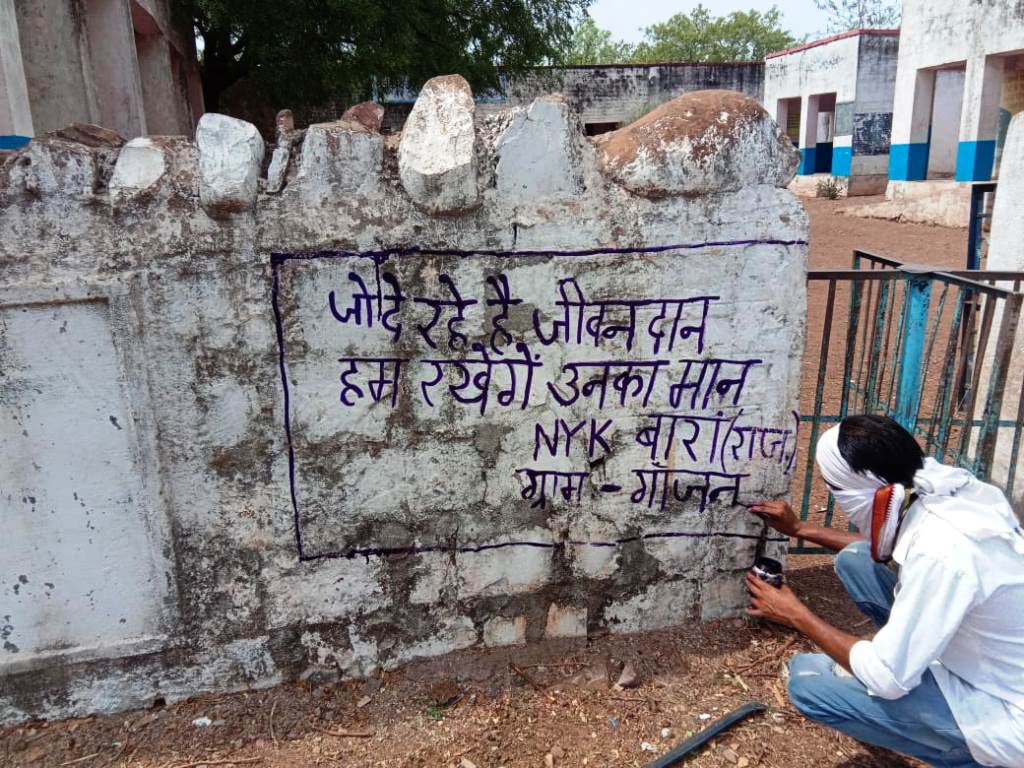 जो दे रहे है जीवन दान
हम रखेगें उनका मान
NYK बारां (राज.)
ग्राम - गांजन